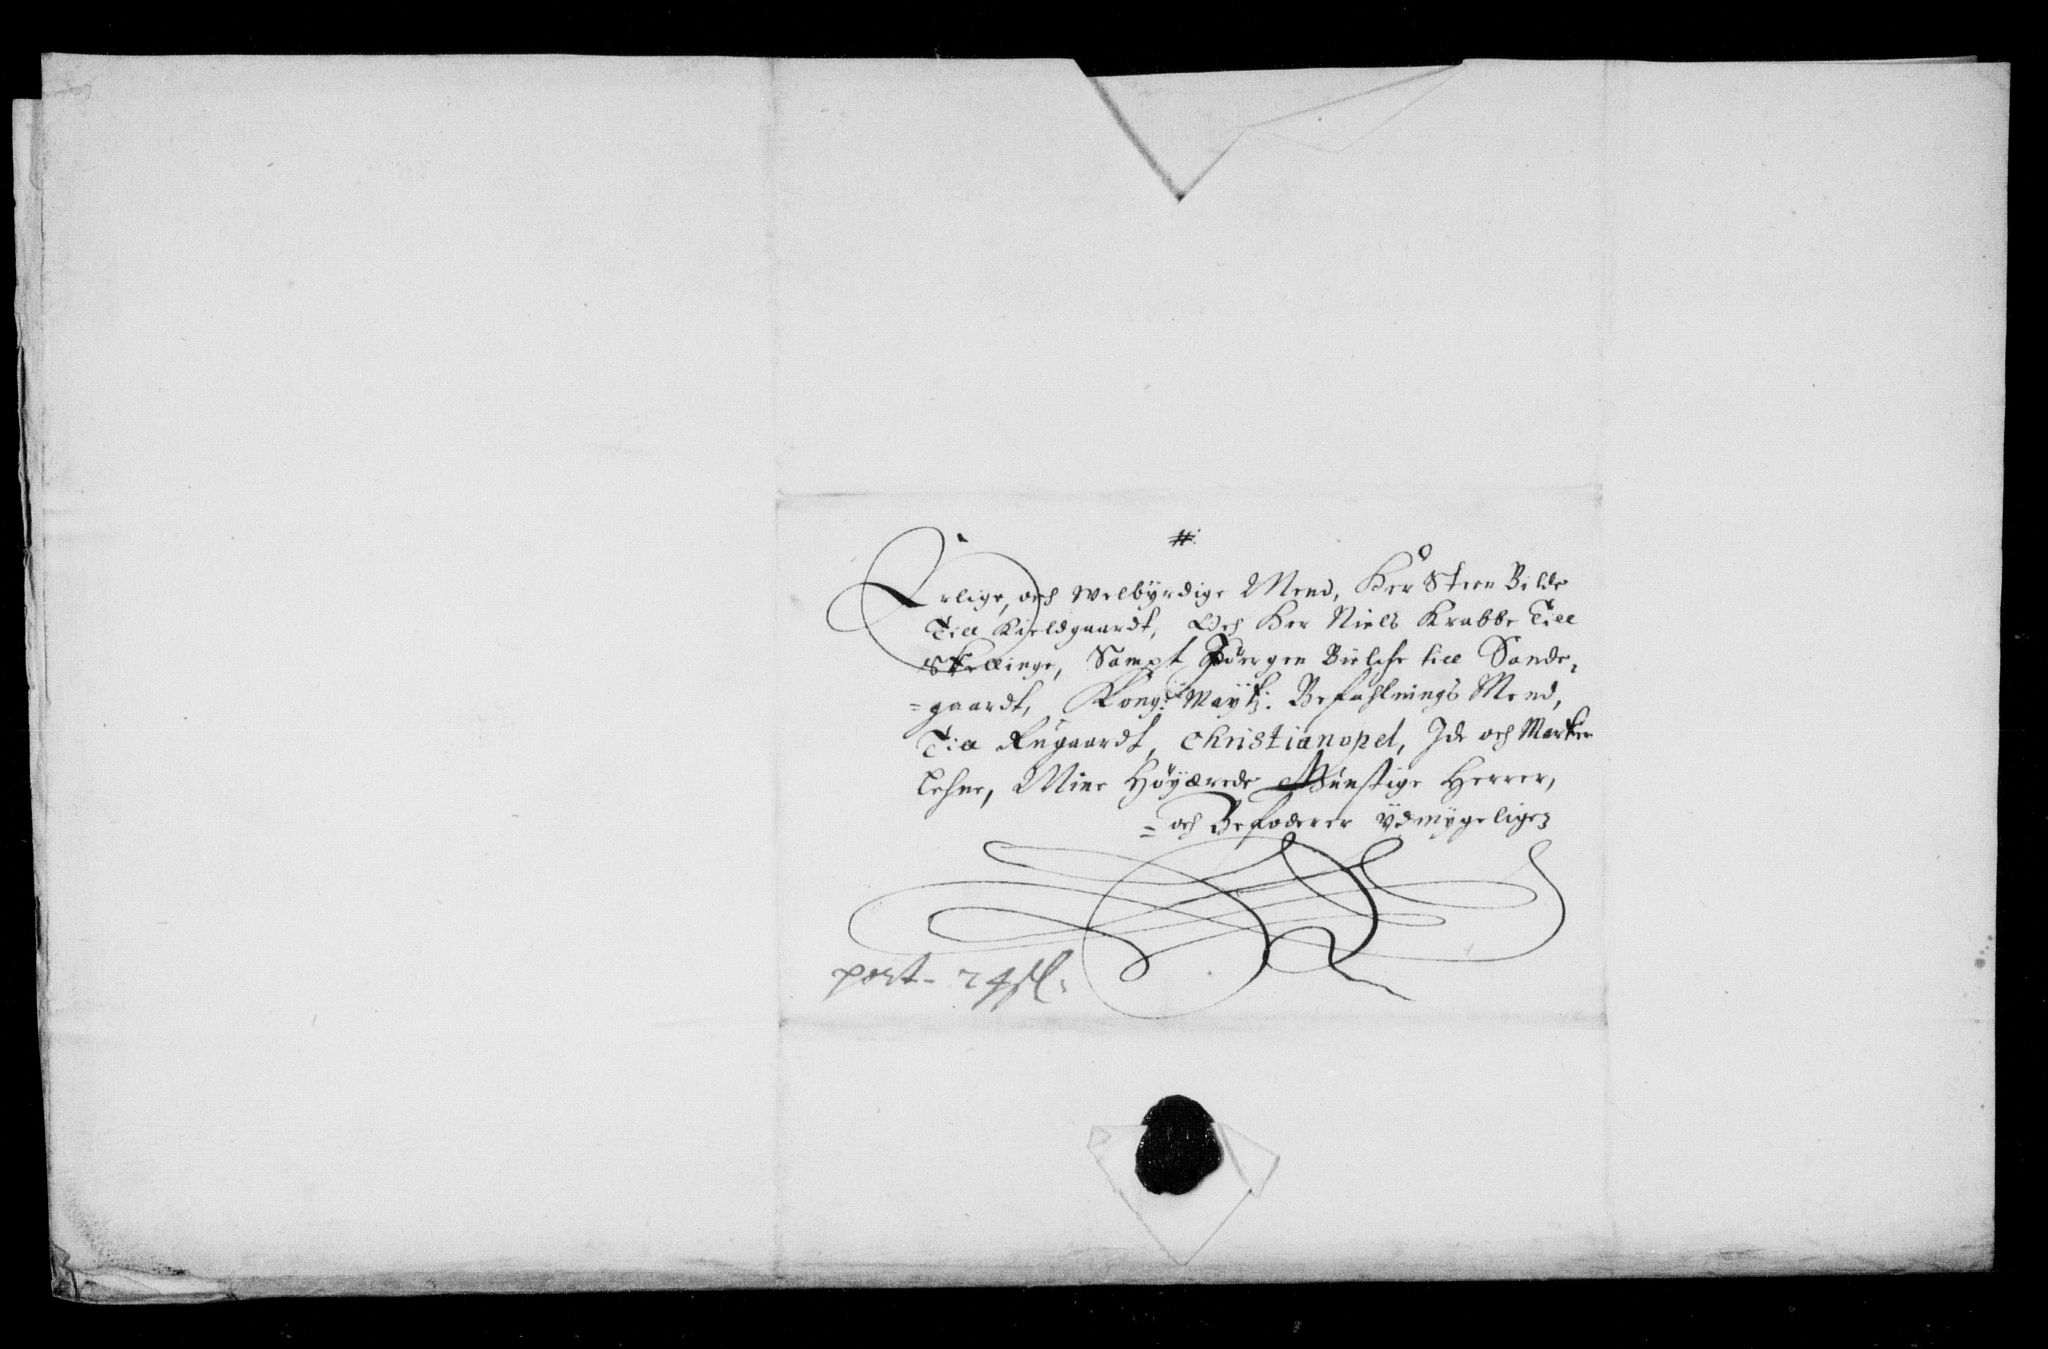 #
Erlige, och Welbÿrdige Mend, Her Steen Bilde
Till Kieldgaardt, Och Her Niels Krabbe Till
Skellinge, Sampt Jöergen Bielche till Sande,
=gaardt, Kong: Maytz: Befahlnings Mend,
Till Rugaardt, Christianopel, Ide och Marker
Lehne, Mine Höÿærede Gunstige Herrer,
= och Befoderer ÿdmÿgeligen
port - 24 sl.